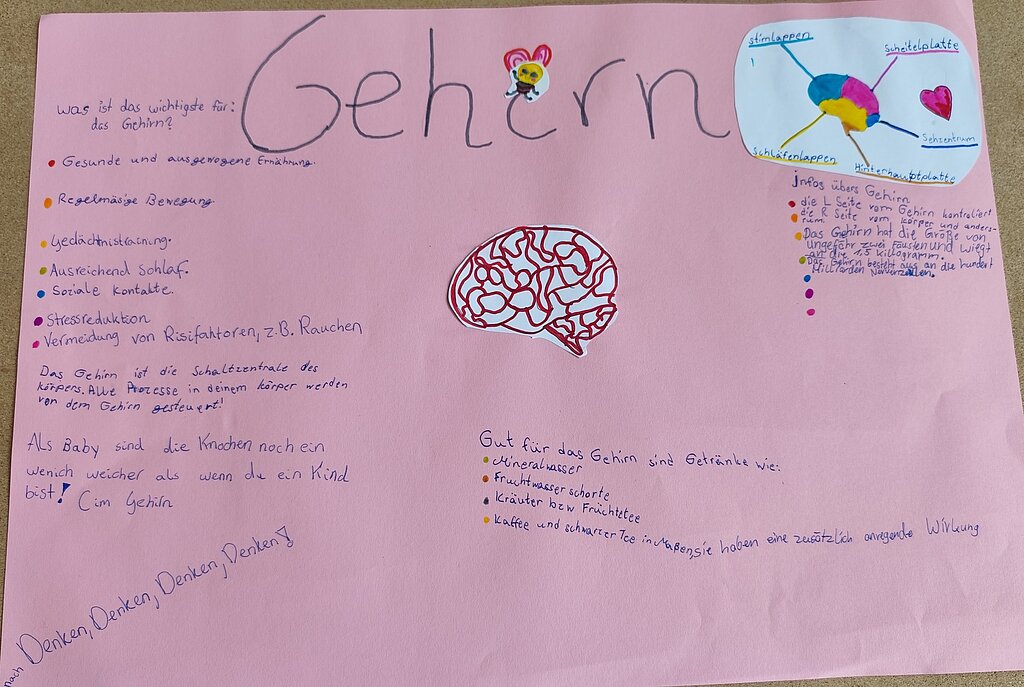 Gehirn
Was ist das wichtigste für:
das Gehirn?
Gesunde und ausgewogene Ernährung.
Regelmäsige Bewegung
Gedächtnistraining.
Ausreichend Schlaf.
Soziale Kontakte.
Stressreduktion
Vermeidung von Risifaktoren, z.B. Rauchen
Das Gehirn ist die Schaltzentrale des
körpers. Alle Prozesse in deinem körper werden
von dem Gehirn gesteuert!
Als Baby sind die Knochen noch ein
wenich weicher als wenn du ein Kind
bist! (im Gehirn
nach Denken, Denken, Denken, Denken!
stirnlappen
Scheitelplatte
Sehzentrum
Schläfenlappen
Hinterhauptplatte
infos übers Gehirn
die L Seite vom Gehirn kontroliert
die R Seite vom körper und anders-
rum.
Das Gehirn hat die Größe von
ungefähr zwei Fäusten und wiegt
an die 1,5 killogramm.
Das Gehirn besteht aus an die hundert
Milliarden Nervenzellen.
Gut für das Gehirn sind Getränke wie:
Mineralwasser
Fruchtwasser schorte
Kräuter bzw Früchtetee
Kaffee und schwarzer Tee in Maßen, sie haben eine zusätzlich anregende Wirkung